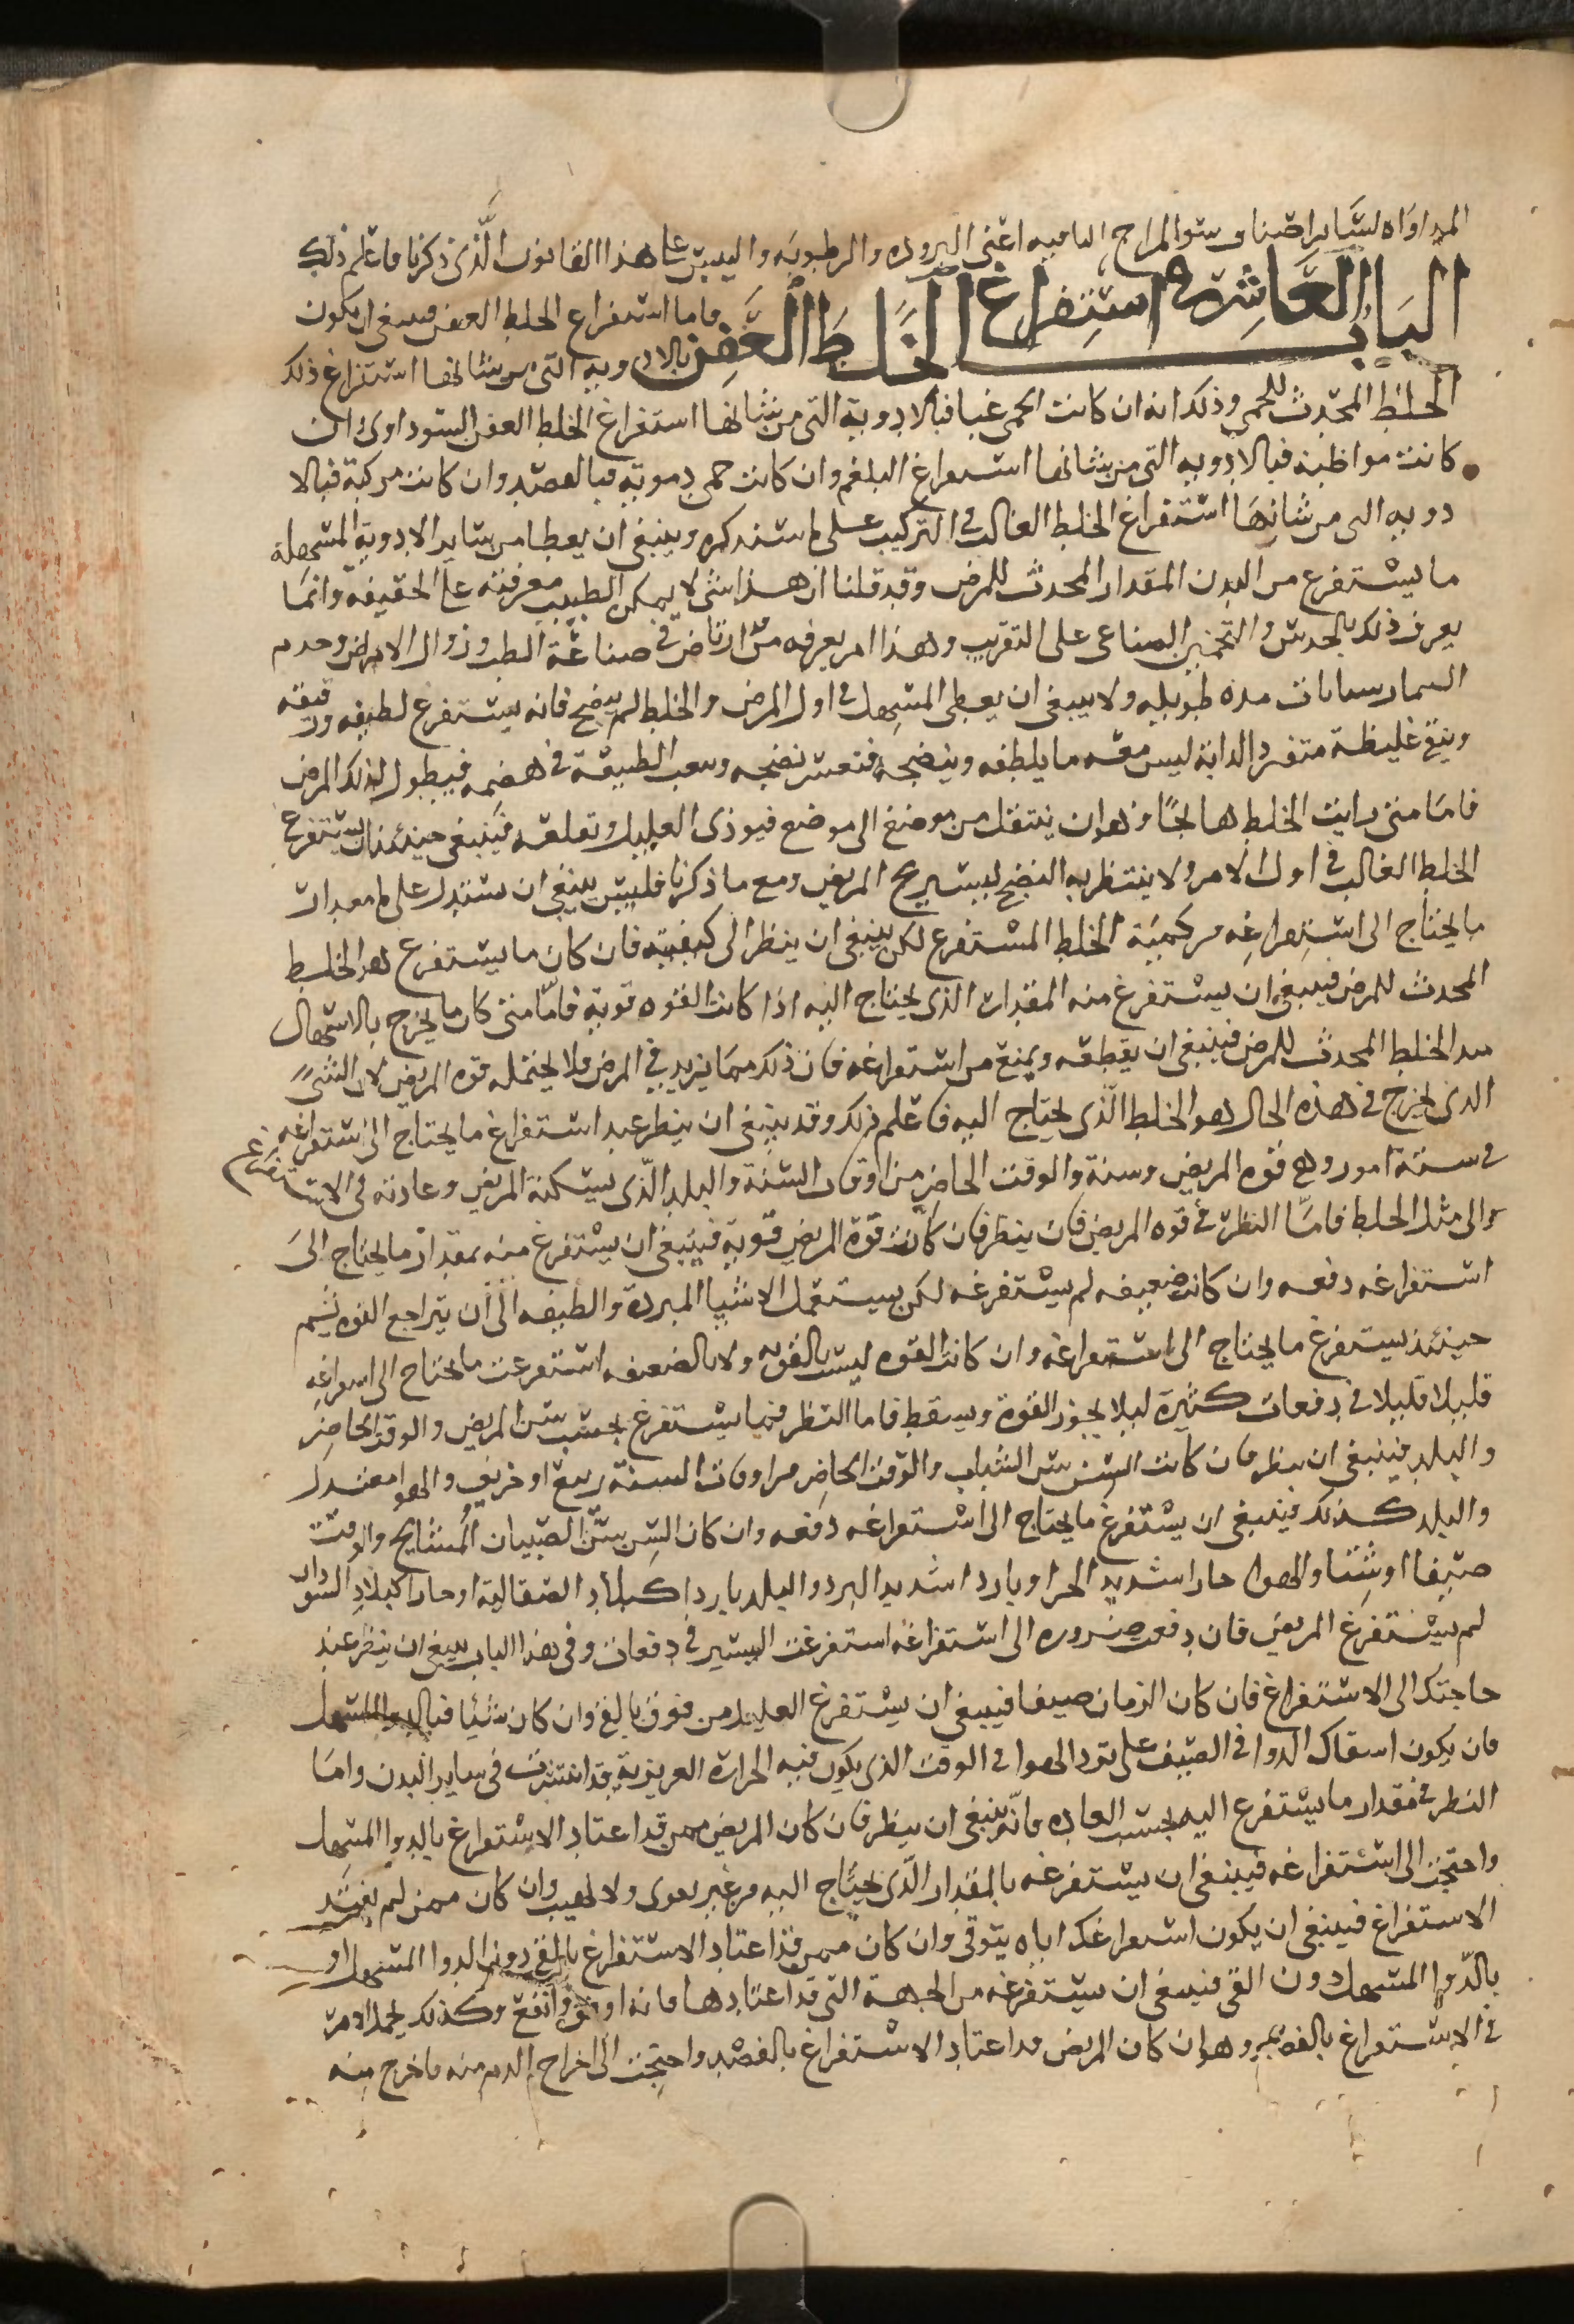 المداواه لسَاير اصناف سو المزاج الباقيه اعنى البروده والرطوبه واليبس على هذا القانون الَّذى ذكرنا فاعلم ذلك
البَابُ العَاشِر فى استِفراغ الخَلَطَ العَفِن
فاما استفراع الخلط العفن فينبغى ان يكون
بالادويه التى من شانها استفراغ ذلك
الخلط المحدث للحمى وذلك انه ان كانت الحمى غبا فبالادوية التى من شانها استفراغ الخلط العفن السوداوى ان
كانت مواظبة فبالادويه التى من شانها استفراغ البلغم وان كانت حمى دمويه فبالفصد وان كانت مركبة فبالا
دويه التى من شانها استفراغ الخلط الغالب فى التركيب على ما سنذكره وينبغى ان يعطا من ساير الادوية المسهلة
ما يستفرع من البدن المقدار المحدث للمرض وقد قلنا ان هذا شى لا يمكن الطبيب معرفته على الحقيقه وانما
يعرف ذلك بالحدس والتخمين الصناعى على التقريب وهذا امر يعرفه من ارتاض فى صناعة الطب وزوال الامراض وخدم
البيمارستانات مده طويله ولا ينبغى ان يعطى المسهل فى اول المرض والخلط لم ينضج فانه يستفرع لطيفه ورقيقه
ويبقى غليظة متفردا لذاته ليس معه ما يلطفه وينضجه فتعسر نضجه وتعب الطبيعة فى هضمه فيطول لذلك المرض
فاما متى رايت الخلط هائجًا وهو ان ينتقل من موضع الى موضع فيوذى العليل وتعلقه فينبغى حينئذ ان يستفرع
الخلط الغالب فى اول الامر ولا ينتظر به النضج ليستريح المريض ومع ما ذكرنا فليس ينبغى ان تستدل على مقدار
ما يحتاج الى استفراغه من كمية الخلط المستفرع لكن ينبغى ان ينظر الى كيفيته فان كان ما يستفرع هو الخلط
المحدث للمرض فينبغى ان يستفرغ منه المقدار الذى يحتاج اليه اذا كانت القوه قوية فامّا متى كان ما يخرج بالاسهال
ضد الخلط المحدث للمرض فينبغى ان يقطعه ويمنع من استفراغه فان ذلك مما يزيد فى المرض ولا يحتمله قوه المريض لان الشى
الذى يخرج فى هذه الحال هو الخلط الّذى يحتاج اليه فاعلم ذلك وقد ينبغى ان ينظر عند استفراغ ما يحتاج الى استفراغه
فى ستة امور وهى قوه المريض وسنه والوقت الحاضر من اوقات السنة والبلد الّذى يسكنه المريض وعادته فى الاستفراغ
والى مثل الخلط فامَّا النظر فى قوه المريض فان ينظر فان كانت قوّة المريض قوية فينبغى ان يستفرغ منه بمقدار ما يحتاج الى
استفراغه دفعه وان كانت ضعيفه لم يستفرغه لكن يستعمل الاشيا المبردة والطيفه الى ان يتراجع القوه ثم
حينئذ يستفرغ ما يحتاج الى استفراغه وان كانت القوه ليست بالقويه ولا بالضعيفه استفرعت ما يحتاج الى استفراغه
قليلا قليلا فى دفعات كثيرة ليلا يخور القوة ويسقط فاما النظر فيما يستفرغ بحسب سن المريض والوقت الحاضر
والبلد فينبغى ان ينظر فان كانت السن سن الشباب والوقت الحاضر من اوقات السنة ربيع او خريف والهوا معتدل
والبلد كذلك فينبغى ان يستفرغ ما يحتاج الى استفراغه دفعه وان كان السن سن الصبيان المشايخ والوقت
صيفا او شتا والهوا حارا شديد الحر او باردا شديد البرد والبلد باردا كبلاد الصقالبة او حارا كبلاد السودان
لم يستفرغ المريض فان دفعت ضروره الى استفراغه استفرغت اليسير فى دفعات وفى هذا الباب ينبغى ان ينظر عند
حاجتك الى الاستفراغ فان كان الزمان صيفا فينبغى ان يستفرغ العليل من فوق بالقى وان كان شتيا فبالدوا المسهل
فان يكون اسقاك الدوا فى الصيف على برد الهوا فى الوقت الذى يكون فيه الحرارة الغريزية قد انتشرت فى ساير البدن واما
النظر فى مقدار ما يستفرع اليه بحسب العاده فانّه ينبغى ان ينظر فان كان المريض ممن قد اعتاد الاستفراغ بالدوا المسهل
واحتجت الى استفراغه فينبغى ان يستفرغه بالمقدار الّذى يحتاج اليه من غير توق ولا تهيب وان كان ممن لم يعتد
الاستفراغ فينبغى ان يكون استفراغك اياه بتوقى وان كان ممن قد اعتاد الاستفراغ بالقى دون الدوا المسهل او
بالدّوا المسهل دون القى فينبغى ان يستفرغه من الجهة التى قد اعتادها فانه اوفق وانفع وكذلك يجرى الامر
فى الاستفراغ بالفصد وهو ان كان المريض قد اعتاد الاستفراغ بالفصد واحتجت الى اخراج الدم منه فاخرج منه